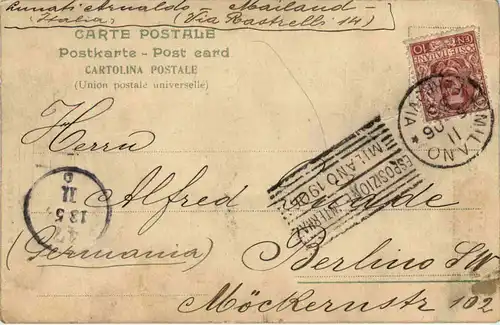 Lunati Arnaldo - Mailand -
Italia) (Via Rastrelli 14)
CARTE POSTALE
Postkarte - Post card
CARTOLINA POSTALE
(Union postale universelle)
POSTE ITALIANE
CENT 10
MILANO
11
06
ESPOSIZIONE INTERNAZ
MILANO 1906
Herrn
Alfred
11
13 5
(Germania)
Berlino SW
Möckernstr 102